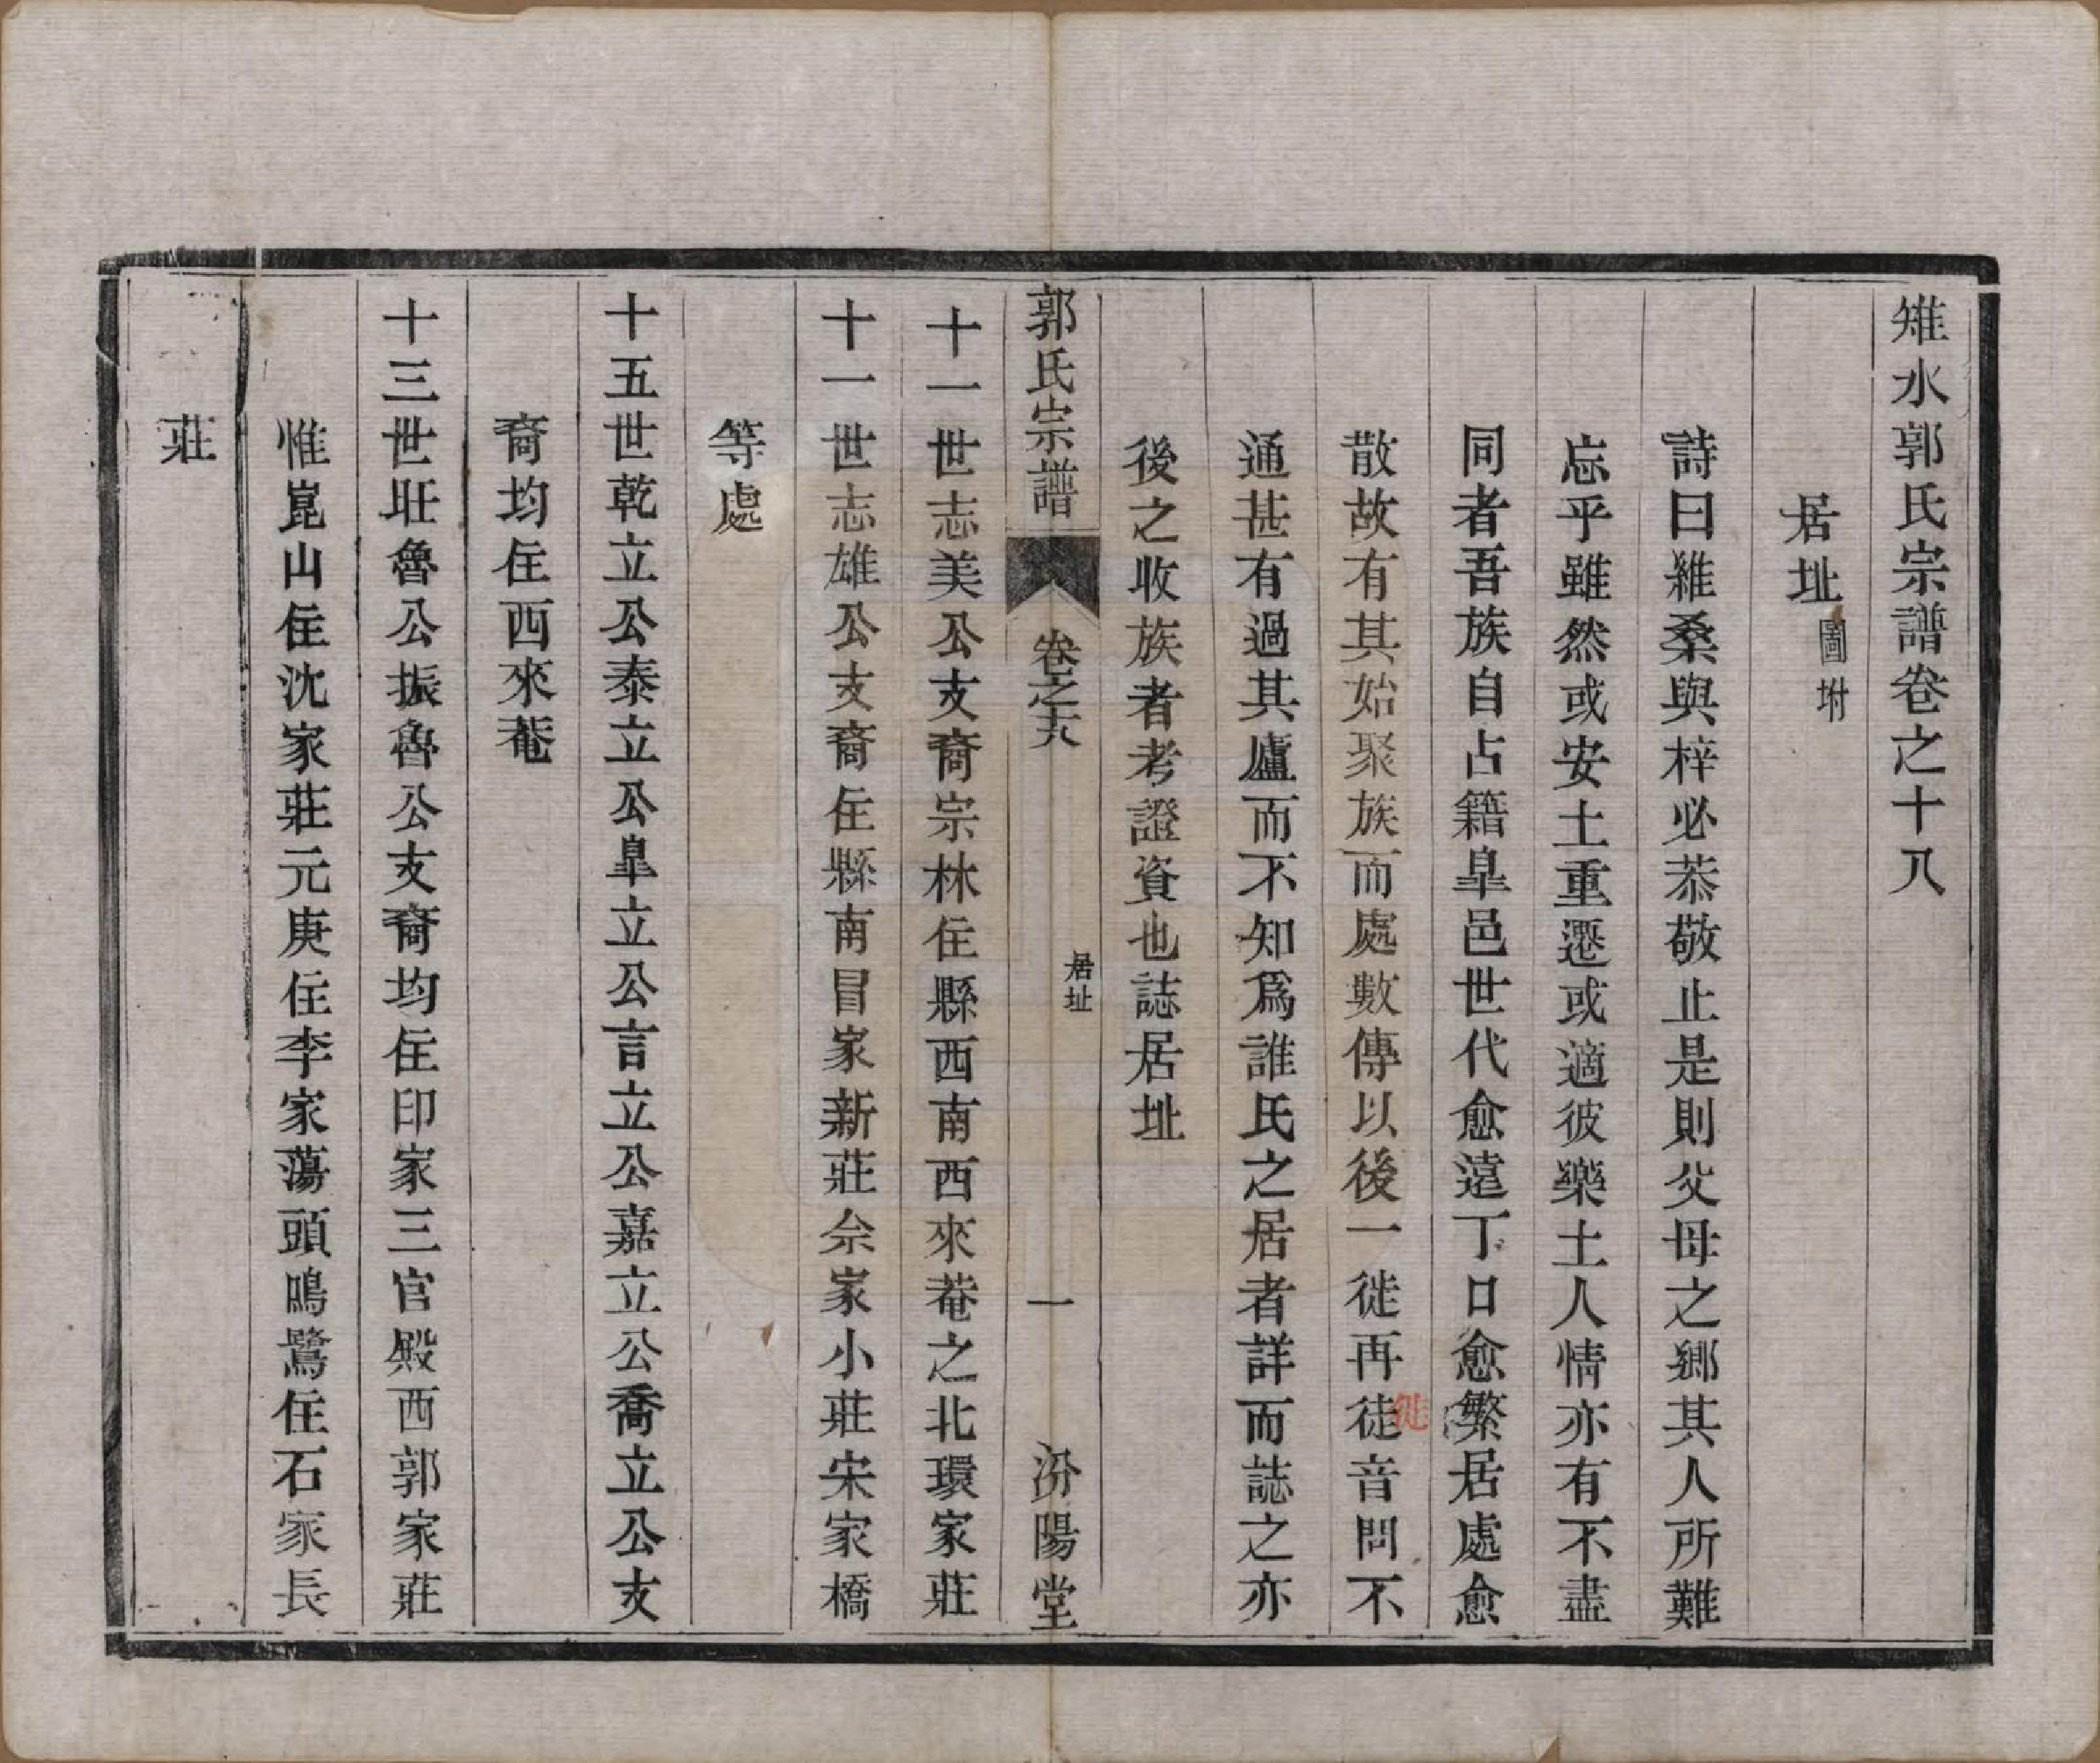 雉水郭氏宗譜卷之十八
居址圖坿
詩曰維桑與梓必恭敬止是則父母之鄉其人所難
忘乎雖然或安土重遷或適彼樂土人情亦有不盡
同者吾族自占籍臯邑世代愈遠丁口愈繁居處愈
散故有其始聚族而處數傳以後一徙再徒音問不
徙
通甚有過其廬而不知爲誰氏之居者詳而誌之亦
後之收族者考證資也誌居址
郭氏宗譜 卷之十八 居址 一 汾陽堂
十一世志美公支裔宗林住縣西南西來菴之北環家莊
十一世志雄公支裔住縣南冒家新莊佘家小莊宋家橋
等處
十五世乾立公泰立公臯立公言立公嘉立公喬立公支
裔均住西來菴
十三世玨魯公振魯公支裔均住印家三官殿西郭家莊
惟崑山住沈家莊元庚住李家蕩頭鳴鷺住石家長
莊